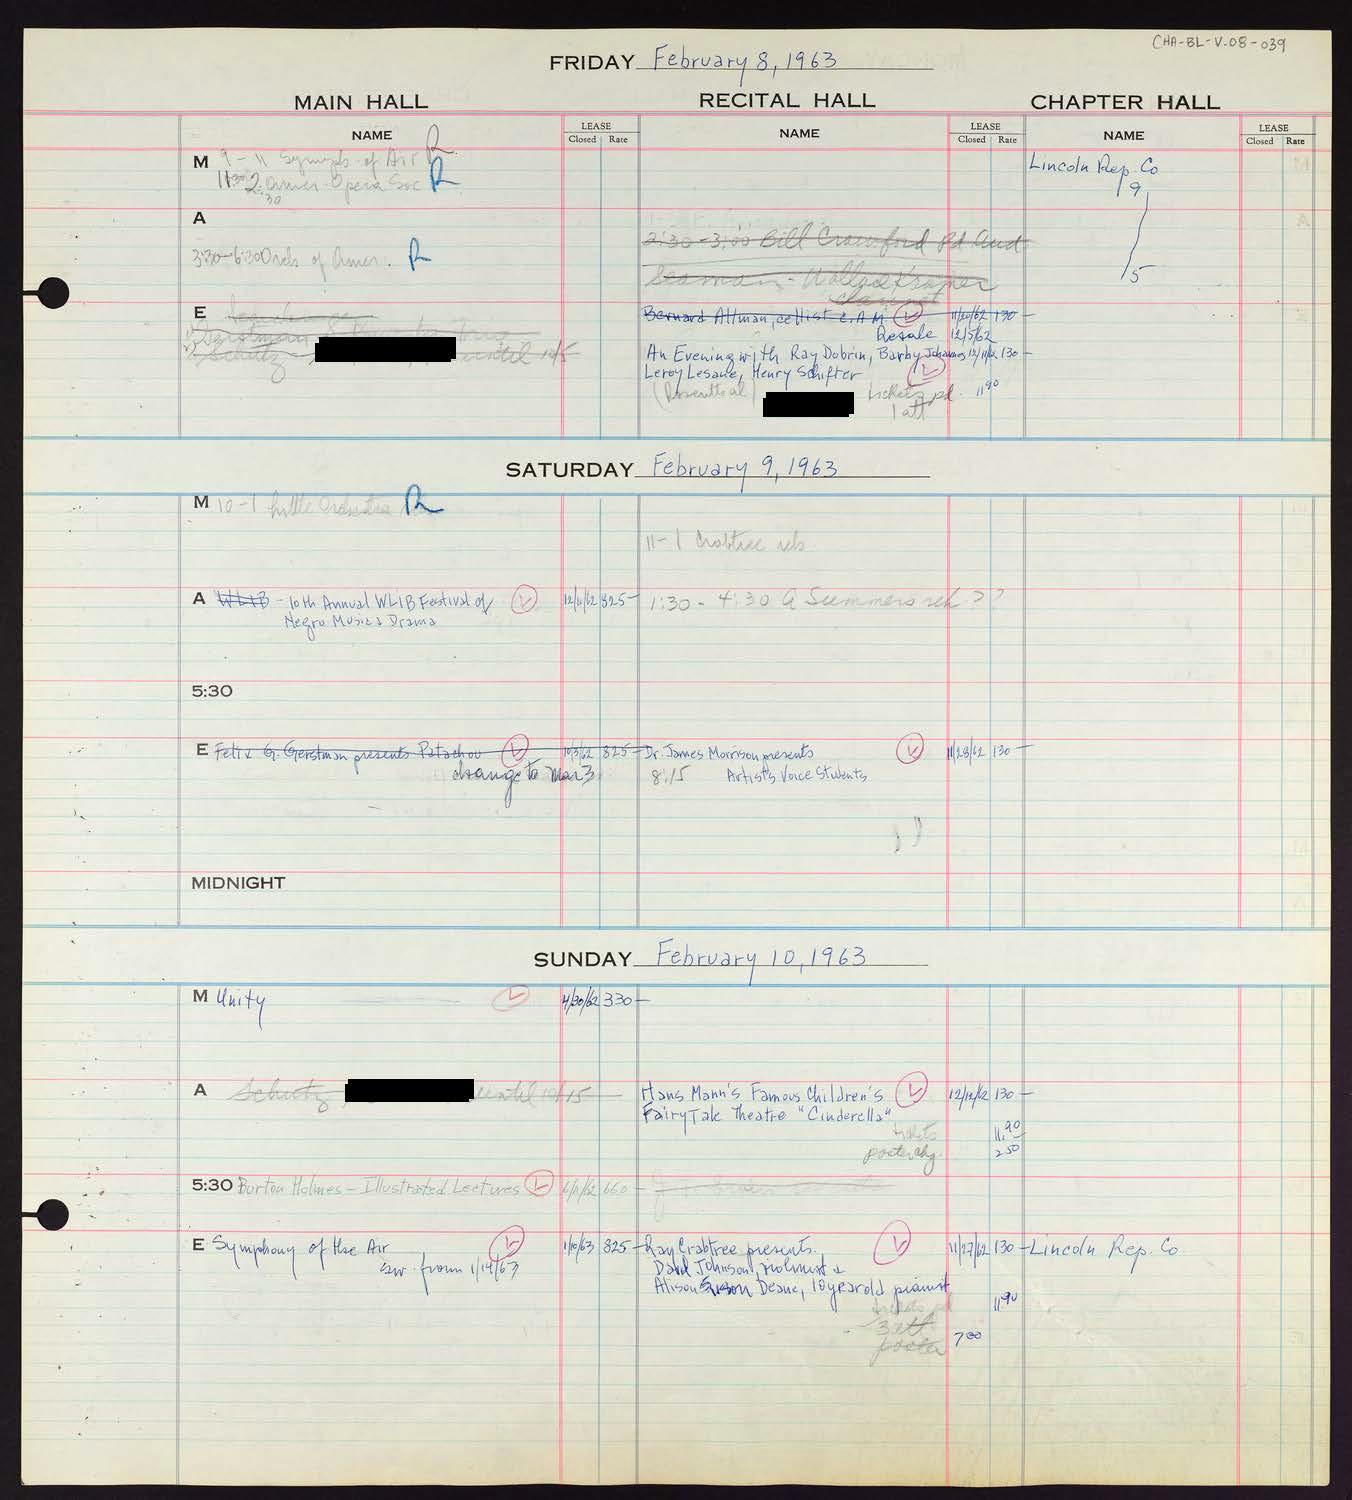 CHA-BL-V.08-039
FRIDAY February 8, 1963
MAIN HALL RECITAL HALL CHAPTER HALL
NAME LEASE Closed Rate NAME LEASE Closed Rate NAME LEASE Closed Rate
M 9-11 Symph. of Air R
11:30 2:30 Amer. Opera Soc R
Lincoln Rep. Co
9
5
A
2:30-3:00 Bill Crawford Pd Aud
3:30-6:30 Orch of Amer. R
Seaman - Wallace Kramer
E
Gerstman
Schutz until 10/5
Bernard Altman, cellist C.A.M 11/20/62 130-
Resale 12/5/62
An Evening with Ray Dobrin, Barby Johannes 12/11/62 130-
Leroy Lesane, Henry Schifter
(Rosenthal) tickets pd. 11 90
1 att
SATURDAY February 9, 1963
M 10-1 Little Orchestra R
11-1 Crabtree reh
A WLIB - 10th Annual WLIB Festival of 12/11/62 825-
Negro Music & Drama
1:30-4:30 A Summers reh ??
5:30
E Felix G. Gerstman presents Patachou 10/3/62 825-
change to Mar 3
Dr. James Morrison presents 11/28/62 130-
8:15 Artists Voice Students
MIDNIGHT
SUNDAY February 10, 1963
M Unity 4/30/62 330-
A Schutz until 10/15
Hans Mann's Famous Children's 12/12/62 130-
Fairy Tale Theatre "Cinderella"
tickets 11.90
poster chg. 2 50
5:30 Burton Holmes - Illustrated Lectures 6/11/62 660-
E Symphony of the Air 1/10/63 825-
sw. from 1/14/63
Ray Crabtree presents 11/27/62 130-
David Johnson, violinist &
Alison Deane, 10 year old pianist
tickets pd 11 90
3 att
poster 7 00
Lincoln Rep. Co